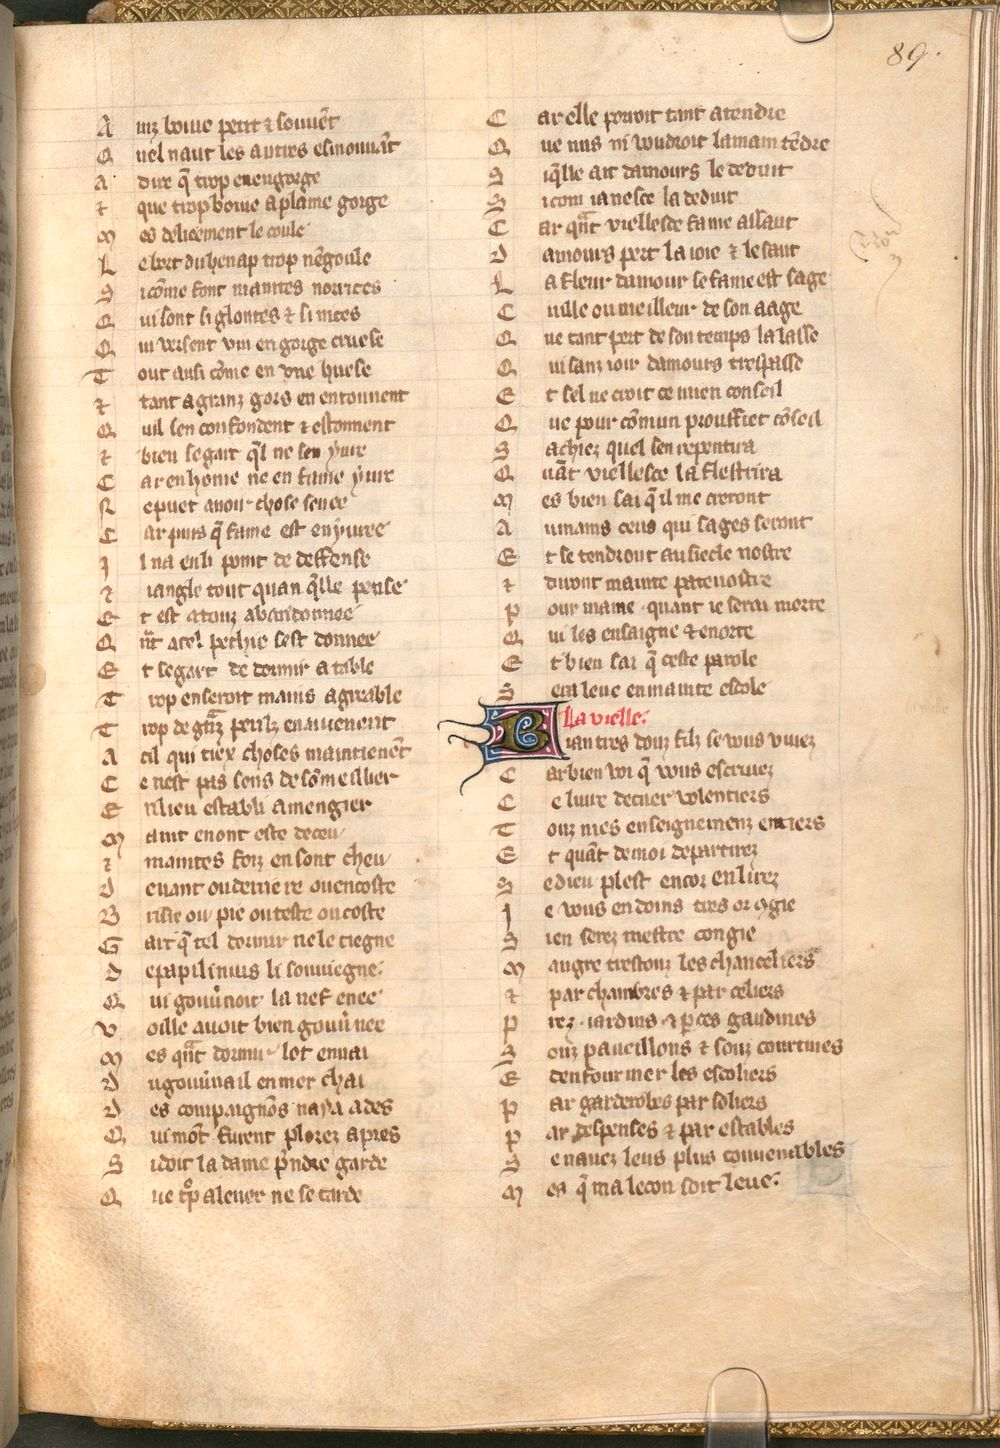 89.
A inz boiue petit & souuẽt
Q uel naut les autres esmouuãt
A dire q̃ trop en engorge
& que trop boiue a plaine gorge
M es delieement le coule
L e bort du henap trop nẽgoule
S icõme font maintes norrices
Q ui sont si gloutes & si nices
Q ui versent vin en gorge creuse
T out ausi cõme en vne huese
& tant a granz gors en entonnent
Q uil sen confondent & estonnent
& bien se gart q̃l ne sen yure
C ar en home ne en fame yure
N e puet auoir chose secree
C ar puis q̃ fame est enyuree
I l na en li point de deffense
& iangle tout quan q̃lle pense
E t est a touz abandonnee
Q ñt a tel pechie sest donnee
E t se gart de dormir a table
T rop en seroit mains agreable
T rop de g̃nz perilz en auienent
A cil qui tiex choses maintienẽt
C e nest pas sens de sõmeillier
E n lieu establi a mengier
M aint en ont este deceu
& maintes foiz en sont cheu
D euant ou derriere ou encoste
B risie ou pie ou teste ou coste
G art q̃ tel dormir ne le tiegne
D e papilinuis li souuiegne
Q ui gouũnoit la nef enee
V oille auoit bien gouũnee
M es qñt dormir lot enuai
D u gouũnail en mer chai
D es compaignõs naya ades
Q ui mõt furent plorez apres
S i doit la dame p̃ndre garde
Q ue tp̃ a leuer ne se tarde
C ar elle porroit tant atendre
Q ue nus ni voudroit la main tẽdre
S i q̃lle ait damours le deduit
S i com ianesce la deduit
C ar qñt viellesce fame assaut
D amours pert la ioie & le saut
L a fleur damour se fame est sage
C uille ou meilleur de son aage
Q ue tant pert de son temps la lasse
Q ui sanz ioir damours trespasse
E t sel ne croit ce mien conseil
Q ue pour cõmun prouffict cõseil
S achiez quel sen repentira
Q uãt viellesce la flestrira
M es bien sai q̃ il me creront
A u mains ceus qui sages seront
E t se tendront au siecle nostre
& diront mainte patenostre
P our mame quant ie serai morte
Q ui les ensaigne & enorte
E t bien sai q̃ ceste parole
S era leue en mainte escole
La vielle.
B iau tres douz filz se vous viuez
C ar bien voi q̃ vous escriuez
C e liure de cuer volentiers
T ouz mes enseignemenz entiers
E t quãt de moi departirez
S e dieu plest encor en lirez
I e vous en doins tres or 9gie
S i en serez mestre congie
M augre trestouz les chanceliers
& par chambres & par celiers
P rez iardins & p̃ ces gaudines
S ouz paueillons & souz courtines
E den fourmer les escoliers
P ar garderobes par soliers
P ar despenses & par estables
S e nauez leus plus conuenables
M es q̃ ma lecon soit leue.